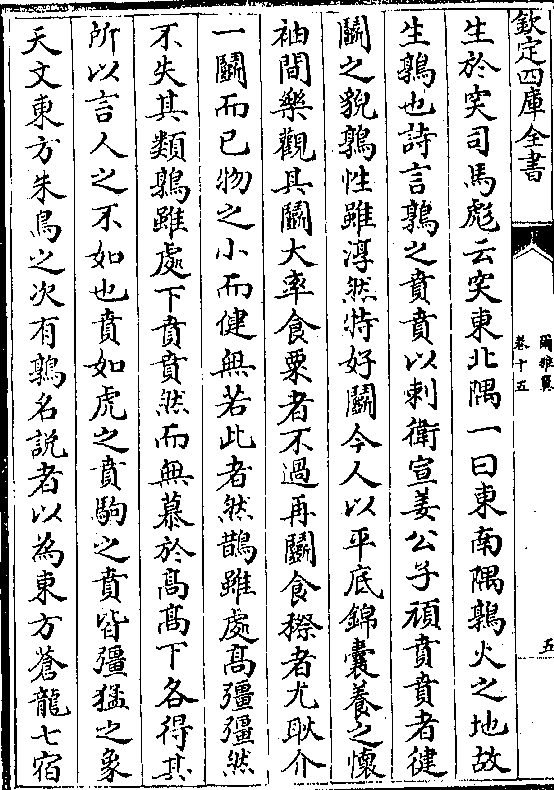 欽定四庫全書
生於穾司馬彪云穾東北隅一曰東南隅鶉火之地故
生鶉也詩言鶉之賁賁以刺衛宣姜公子頑賁賁者健
鬭之貌鶉性雖淳然特好鬭今人以平底錦囊養之懷
袖間樂觀其鬭大率食粟者不過再鬭食𥡴者尤耿介
一鬭而已物之小而健無若此者然鵲雖處高彊彊然
不失其類鶉雖處下賁賁然而無慕於高高下各得其
所以言人之不如也賁如虎之賁駒之賁皆彊猛之象
天文東方朱鳥之次有鶉名說者以為東方蒼龍七宿
爾雅翼
卷十五
五